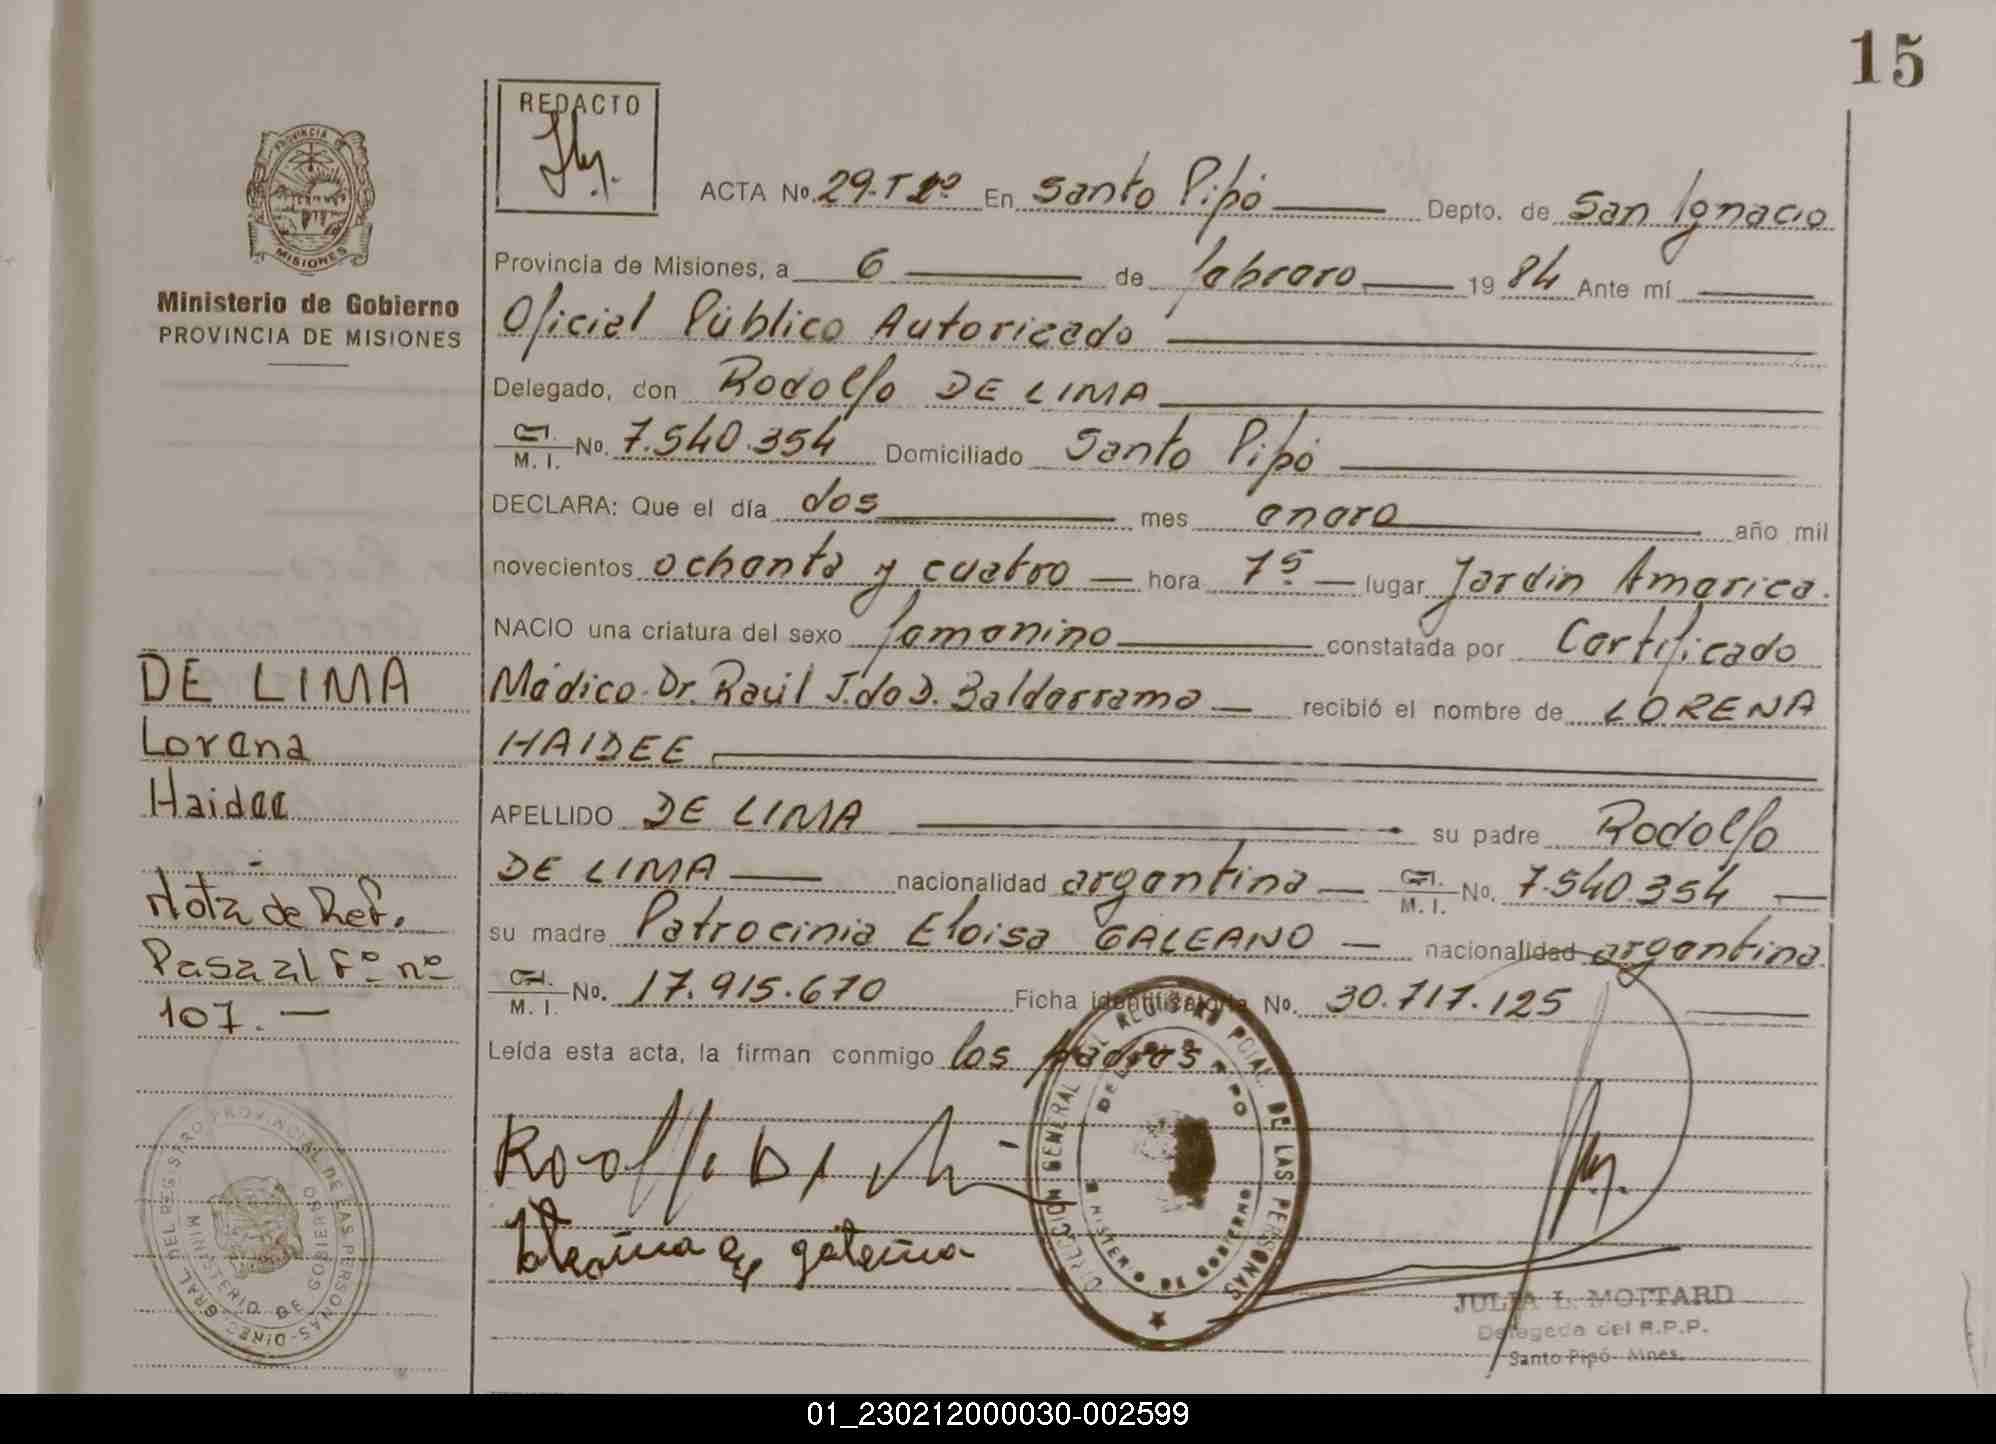 15
REDACTO
PROVINCIA DE
MISIONES
Ministerio de Gobierno
PROVINCIA DE MISIONES
ACTA No. 29-T 2º En Santo Pipó Depto. de San Ignacio
Provincia de Misiones, a 6 de febrero 19 84 Ante mí
Oficial Público Autorizado
Delegado, con Rodolfo DE LIMA
C.I.
M. I. No. 7.540.354 Domiciliado Santo Pipó
DECLARA: Que el día dos mes enero año mil
novecientos ochenta y cuatro hora 15 lugar Jardin America.
NACIO una criatura del sexo femenino constatada por Certificado
Médico Dr. Raúl J. do D. Balderrama recibió el nombre de LORENA
HAIDEE
APELLIDO DE LIMA su padre Rodolfo
DE LIMA nacionalidad argentina C.I.
M. I. No. 7.540.354
su madre Patrocinia Eloisa GALEANO nacionalidad argentina.
C.I.
M. I. No. 17.915.670 Ficha identificatoria No. 30.717.125
Leída esta acta, la firman conmigo los padres
DE LIMA
Lorena
Haidee
Nota de Ref.
Pasa al Fº nº
107.
DIREC. GRAL. DEL REGISTRO PROVINCIAL DE LAS PERSONAS
MINISTERIO DE GOBIERNO
DIRECCION GENERAL DEL REGISTRO PCIAL. DE LAS PERSONAS
MINISTERIO DE GOBIERNO
JULIA L. MOTTARD
Delegada del R.P.P.
Santo Pipó - Mnes.
01_230212000030-002599